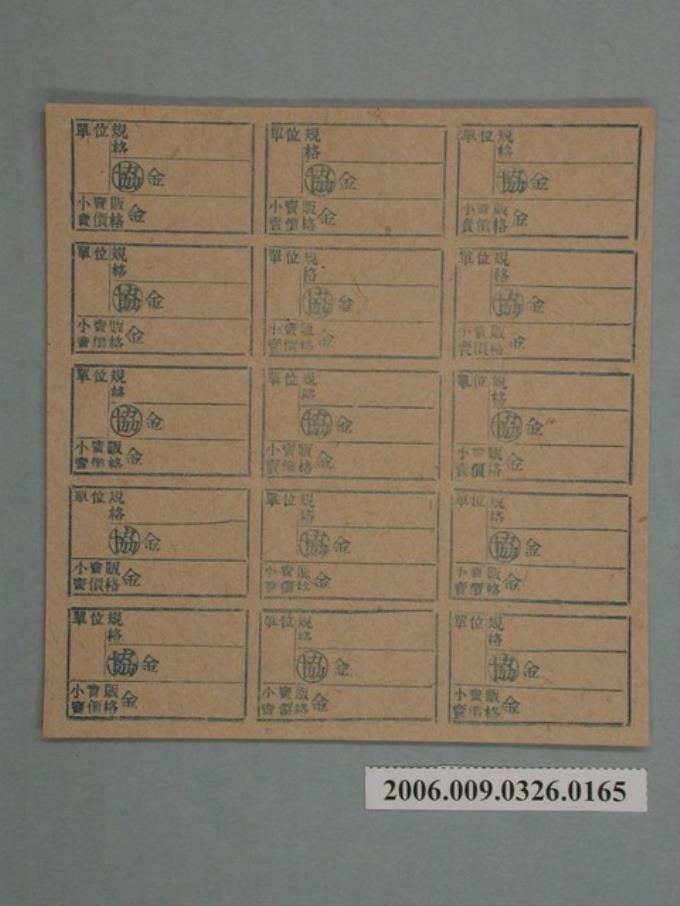 單位規
格
協金
小賣販
賣價格金
單位規
格
協金
小賣販
賣價格金
單位規
格
協金
小賣販
賣價格金
單位規
格
協金
小賣販
賣價格金
單位規
格
協金
小賣販
賣價格金
單位規
格
協金
小賣販
賣價格金
單位規
格
協金
小賣販
賣價格金
單位規
格
協金
小賣販
賣價格金
單位規
格
協金
小賣販
賣價格金
單位規
格
協金
小賣販
賣價格金
單位規
格
協金
小賣販
賣價格金
單位規
格
協金
小賣販
賣價格金
單位規
格
協金
小賣販
賣價格金
單位規
格
協金
小賣販
賣價格金
單位規
格
協金
小賣販
賣價格金
2006.009.0326.0165